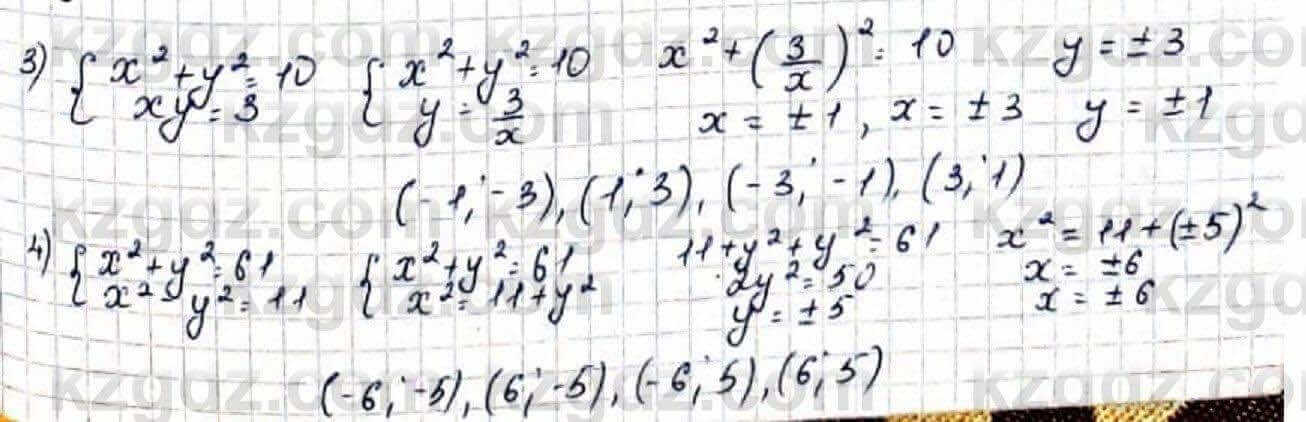 3) { x² + y² = 10 { x² + y² = 10 x² + (3/x)² = 10 y = ±3
xy = 3 y = 3/x x = ±1, x = ±3 y = ±1
(-1; -3), (1; 3), (-3; -1), (3; 1)
4) { x² + y² = 61 { x² + y² = 61 11 + y² + y² = 61 x² = 11 + (±5)²
x² - y² = 11 x² = 11 + y² 2y² = 50 x = ±6
y = ±5 x = ±6
(-6; -5), (6; -5), (-6; 5), (6; 5)
kzgdz.com